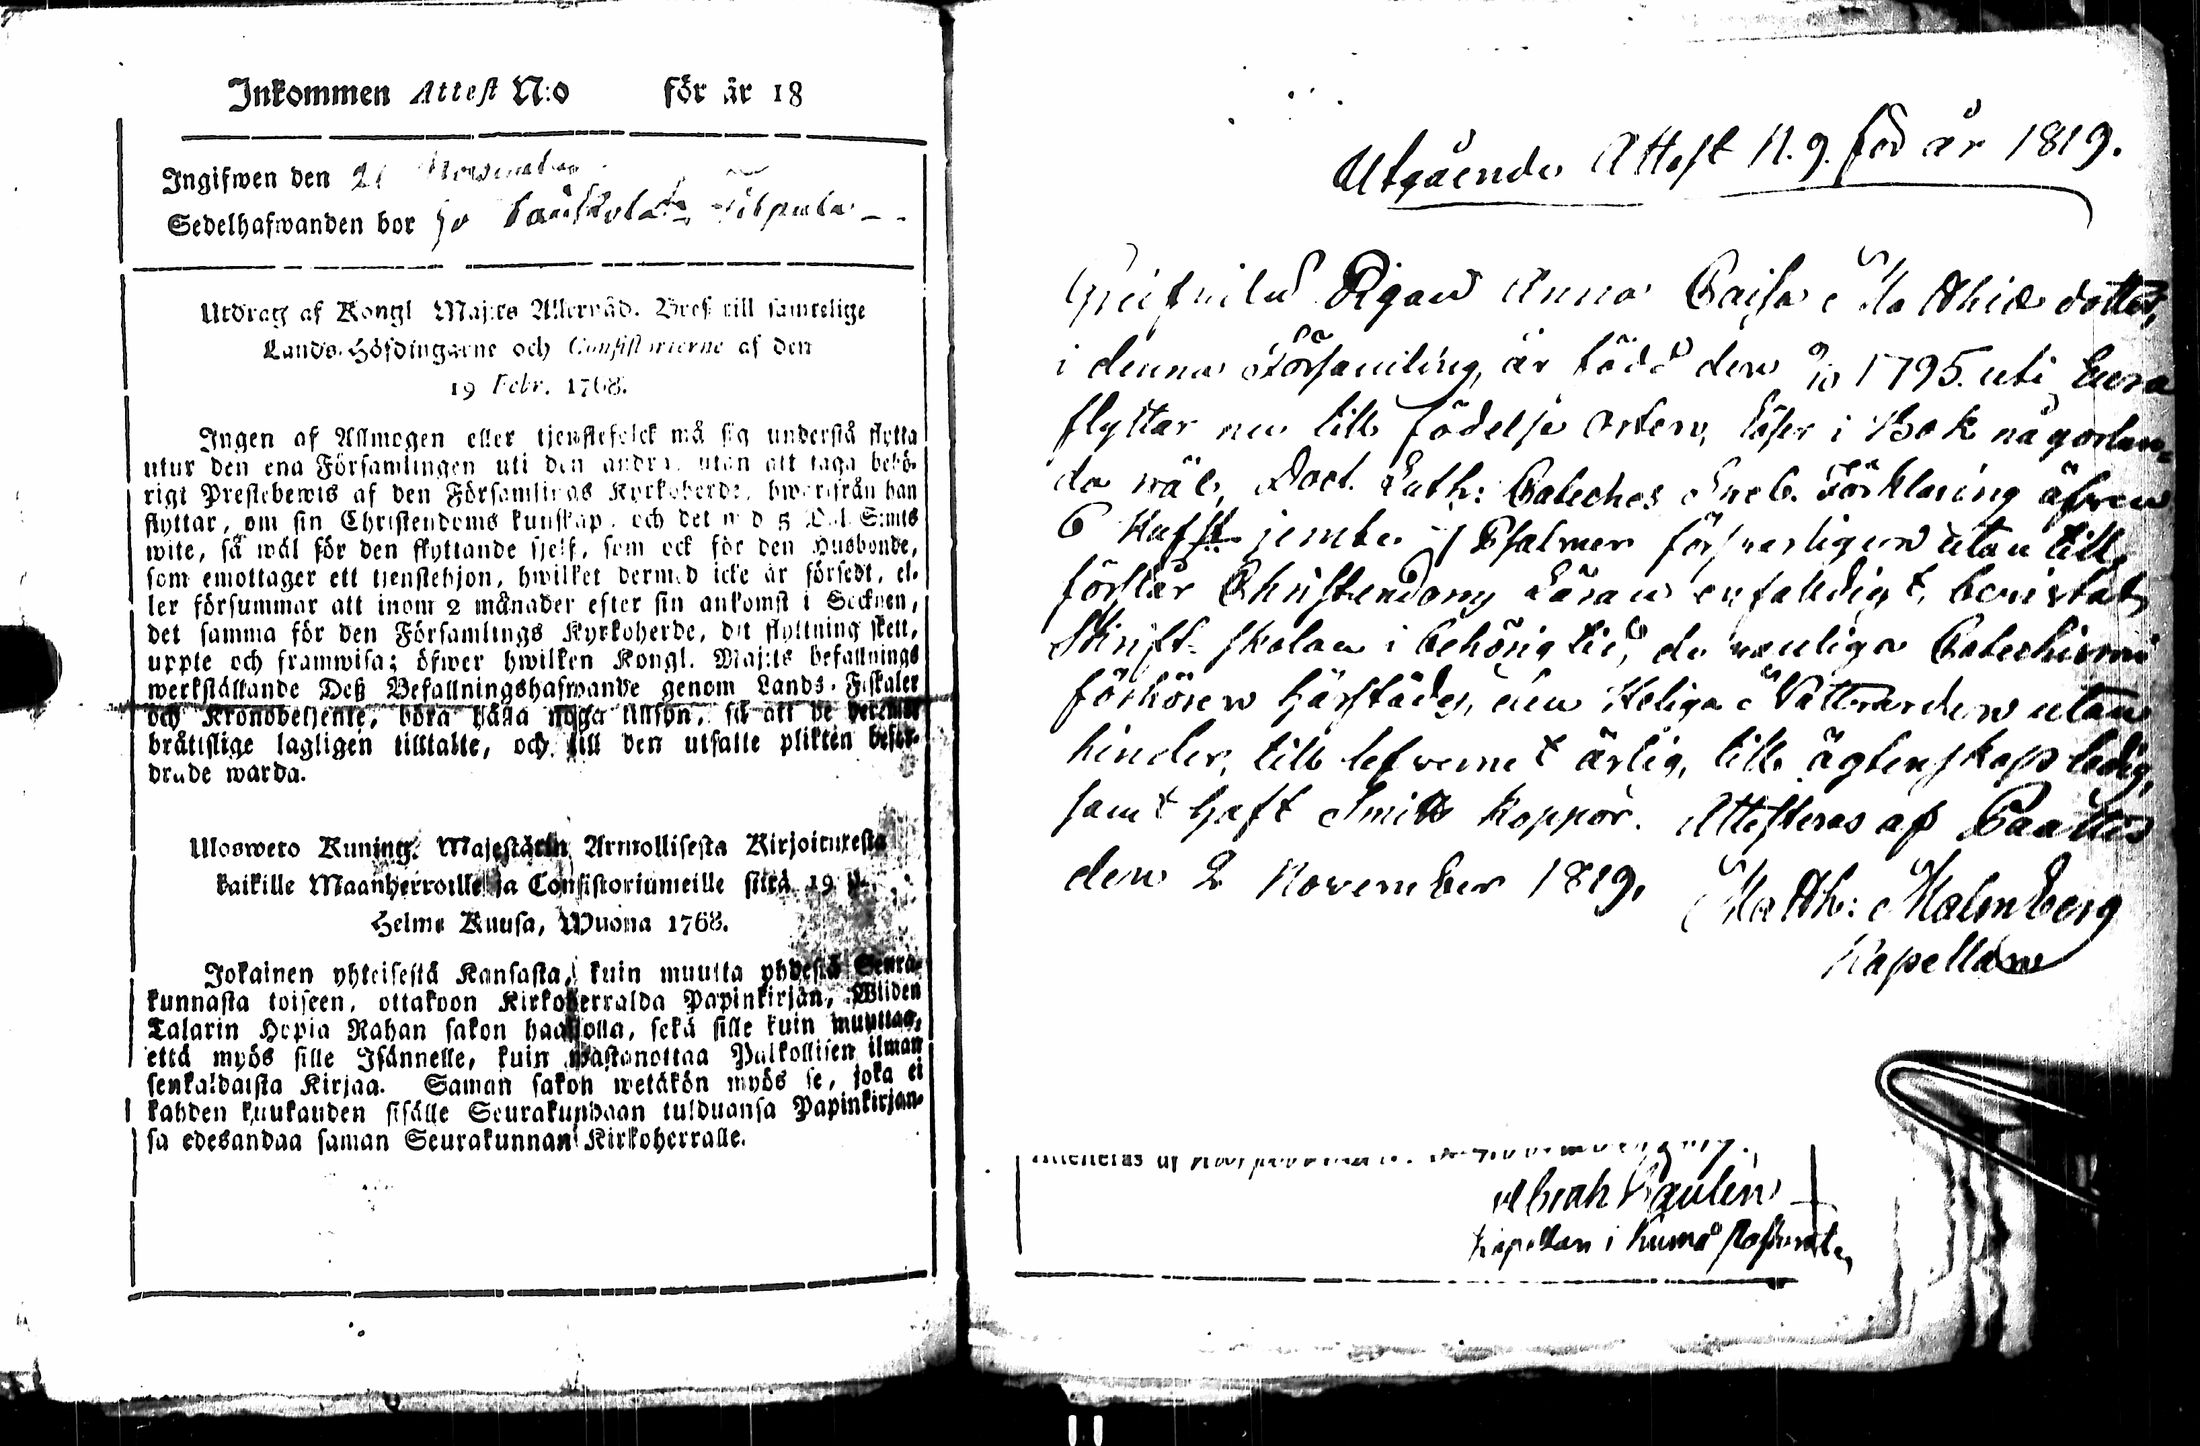 Inkommen Attest N:o för år 18
Ingifwen den 21 November
Sedelhafwanden bor
Utdrag af Kongl Maj:ts Allernåd. Bref till samtelige
Lands-Höfdingarne och Consistorierne af den
19 Febr. 1768.
Ingen af Allmogen eller tjenstefolck må sig understå flytta
utur den ena Församlingen uti den andra, utan att taga behö-
rigt Prestebewis af den Församlings Kyrkoherde, hwarifrån han
flyttar, om sin Christendoms kunskap, och det wid 5 Dal. S:mts
wite, så wäl för den flyttande sjelf, som ock för den Husbonde,
som emottager ett tjenstehjon, hwilket dermed icke är försedt, el-
ler försummar att inom 2 månader efter sin ankomst i Socknen,
det samma för den Församlings Kyrkoherde, dit flyttning skett,
uppte och framwisa; öfwer hwilken Kongl. Maj:ts befallnings
werkställande Deß Befallningshafwande genom Lands-Fiskaler
och Kronobetjente, böra hålla noga tillsyn, så att de
bråttslige lagligen tilltalte, och till den utsatte plikten befor-
drade warda.
Uloswero Kuning. Majestätin Armollisesta Kirjoituxesta
kaikille Maanherroille ja Consistoriumeille siitä 19 p.
Helme Kuusa, Wuona 1768.
Jokainen yhteisestä Kansasta, kuin muutta yhdestä Seura-
kunnasta toiseen, ottakoon Kirkoherralda Papinkirjan, Wiiden
Talarin Hopia Rahan sakon haastolla, sekä sille kuin muuttaa,
että myös sille Isännelle, kuin wastanottaa Palkollisen ilman
senkaldaista Kirjaa. Saman sakon wetäkön myös se, joka ei
kahden kuukauden sisälle Seurakundaan tulduansa Papinkirjan-
sa edesandaa saman Seurakunnan Kirkoherralle.
Utgående Attest N. 9. för år 1819.
Pigan Anna Caisa Matthiæ dotter,
i denna Församling, är född den 1795. uti Eura
flyttar nu till födelse orten, läser i Bok någorlun-
da wäl, Doct. Luth: Cateches Sveb. Förklaring äfven
6 Hufst jemte 7 Psalmer försvarligen utan till,
förstår Christendoms Läran enfaldigt, bevistat
Skrift-skolan i behörig tid, de vanliga Catechismi
förhören härstädes, den Heliga Nattvarden utan
hinder, till lefvernet ärlig, till ägtenskap ledig,
samt haft Smitt koppor. Attesteras af Paattis
den 2 November 1819.
Matth: Malmberg
Kapellan
Attesteras af
Abrah Paulin
Kapellan i Kumo